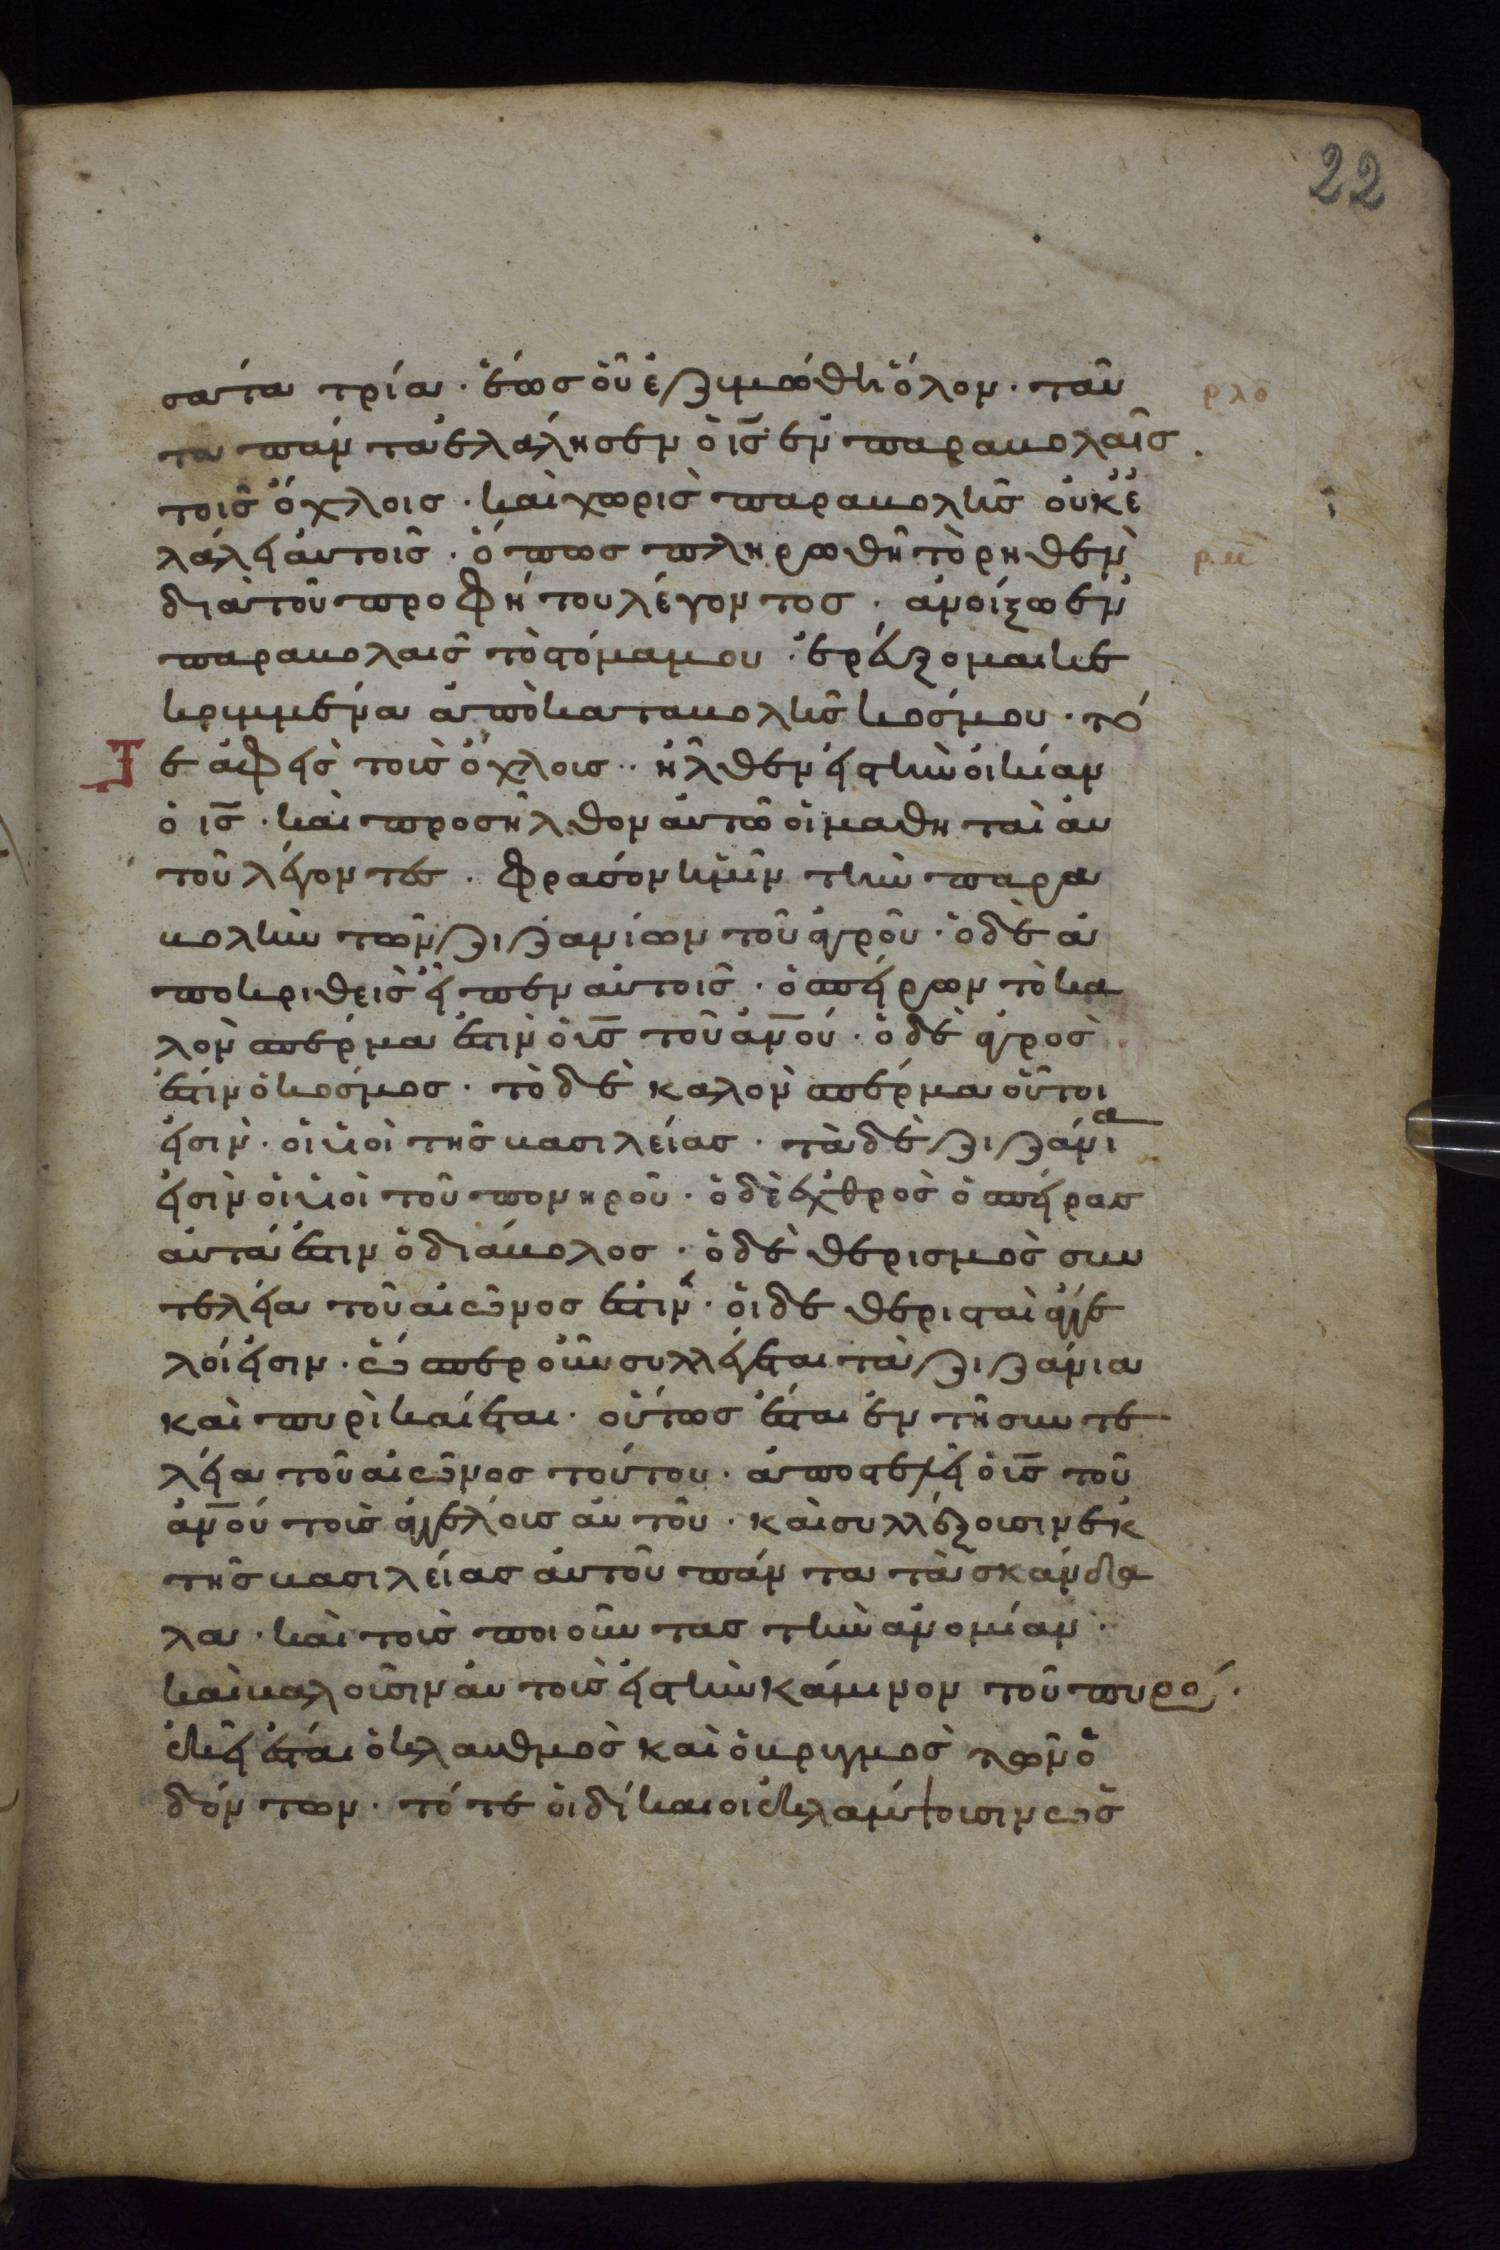 22
σατα τρία · ἕως οὗ ἐζυμώθη ὅλον · ταῦ
ρλθ
τα πάντα ἐλάλησεν ὁ ις ἐν παραβολαῖς
τοῖς ὄχλοις · καὶ χωρὶς παραβολῆς οὐκ ἐ
λάλει αὐτοῖς · ὅπως πληρωθῇ τὸ ρηθὲν
ρμ
διὰ τοῦ προφήτου λέγοντος · ἀνοίξω ἐν
παραβολαῖς τὸ στόμα μου · ἐρεύξομαι κε
κρυμμένα ἀπὸ καταβολῆς κόσμου · τό
τε ἀφεὶς τοὺς ὄχλους · ἦλθεν εἰς τὴν οἰκίαν
ὁ ις · καὶ προσῆλθον αὐτῶ οἱ μαθηταὶ αὐ
τοῦ λέγοντες · φράσον ἡμῖν τὴν παρα
βολὴν τῶν ζιζανίων τοῦ ἀγροῦ · ὁ δὲ ἀ
ποκριθεὶς εἶπεν αὐτοῖς · ὁ σπείρων τὸ κα
λὸν σπέρμα ἐστὶν ὁ υς τοῦ ανου · ὁ δὲ ἀγρὸς
ἐστιν ὁ κόσμος · τὸ δὲ καλὸν σπέρμα οὗτοι
εἰσὶν · οἱ υἱοὶ τῆς βασιλείας · τὰ δὲ ζιζάνια
εἰσὶν οἱ υἱοὶ τοῦ πονηροῦ · ὁ δὲ ἐχθρὸς ὁ σπείρας
αὐτά ἐστιν ὁ διάβολος · ὁ δὲ θερισμὸς συν
τέλεια τοῦ αἰῶνος ἐστιν · οἱ δὲ θερισταὶ ἄγγε
λοί εἰσιν · ὥσπερ οὖν συλλέγεται τὰ ζιζάνια
καὶ πυρὶ καίεται · οὕτως ἔσται ἐν τῆ συντε
λεία τοῦ αἰῶνος τούτου · ἀποστελεῖ ὁ υς τοῦ
ανου τοὺς ἀγγέλους αὐτοῦ · καὶ συλλέξουσιν ἐκ
τῆς βασιλείας αὐτοῦ πάντα τὰ σκάνδα
λα · καὶ τοὺς ποιοῦντας τὴν ἀνομίαν ·
καὶ βαλοῦσιν αὐτοὺς εἰς τὴν κάμινον τοῦ πυρό ·
ἐκεῖ ἔσται ὁ κλαυθμὸς καὶ ὁ βρυγμὸς τῶν ὀ
δόντων · τότε οἱ δίκαιοι ἐκλάμψουσιν ὡς